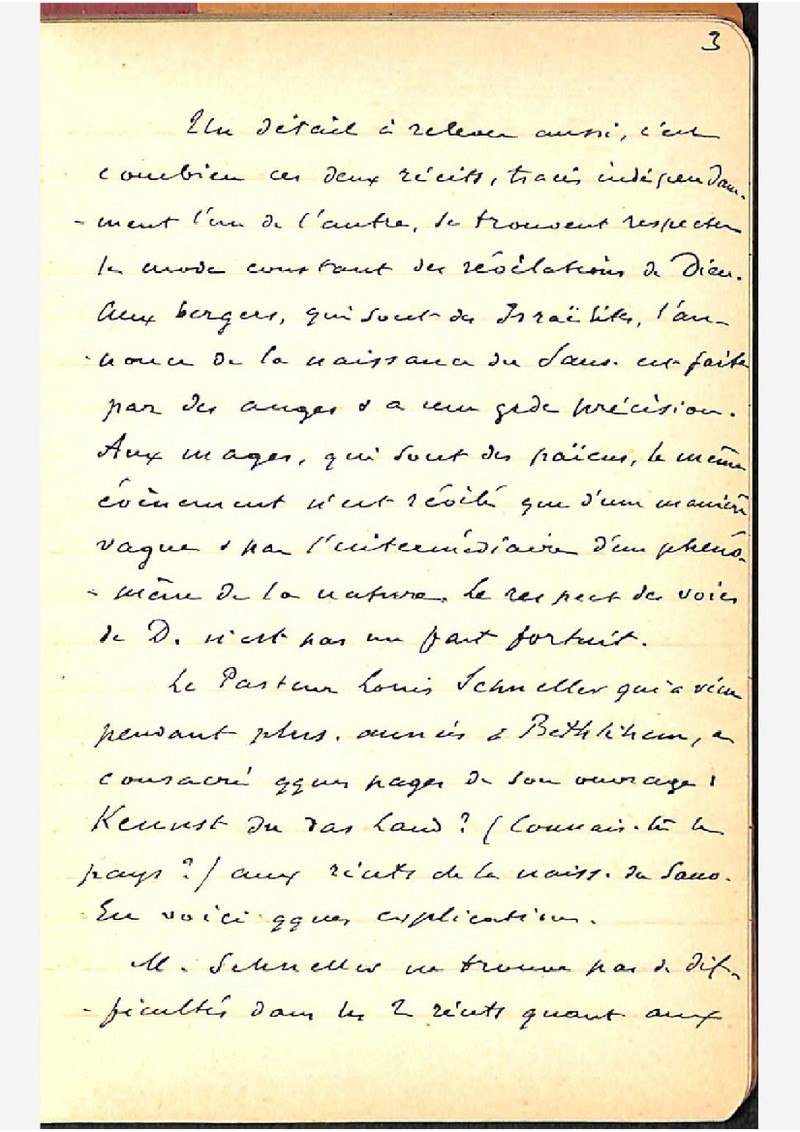 3
Un détail à relever aussi, c'est
combien ces deux récits, tracés indépendam-
-ment l'un de l'autre, se trouvent respecter
le mode constant des révélations de Dieu.
Aux bergers, qui sont des Israëlites, l'an-
-nonce de la naissance du Sauv. est faite
par des anges & avec gde précision.
Aux mages, qui sont des païens, le même
évènement n'est révélé que d'une manière
vague & par l'intermédiaire d'un phéno-
-mène de la nature. Le respect des voies
de D. n'est pas un fait fortuit.
Le Pasteur Louis Schneller qui a vécu
pendant plus. années à Bethléhem, a
consacré qques pages de son ouvrage :
Kennst du das Land ? (Connais-tu le
pays ?) aux récits de la naiss. du Sauv.
En voici qques explications.
M. Schneller ne trouve pas de dif-
-ficultés dans les 2 récits quant aux